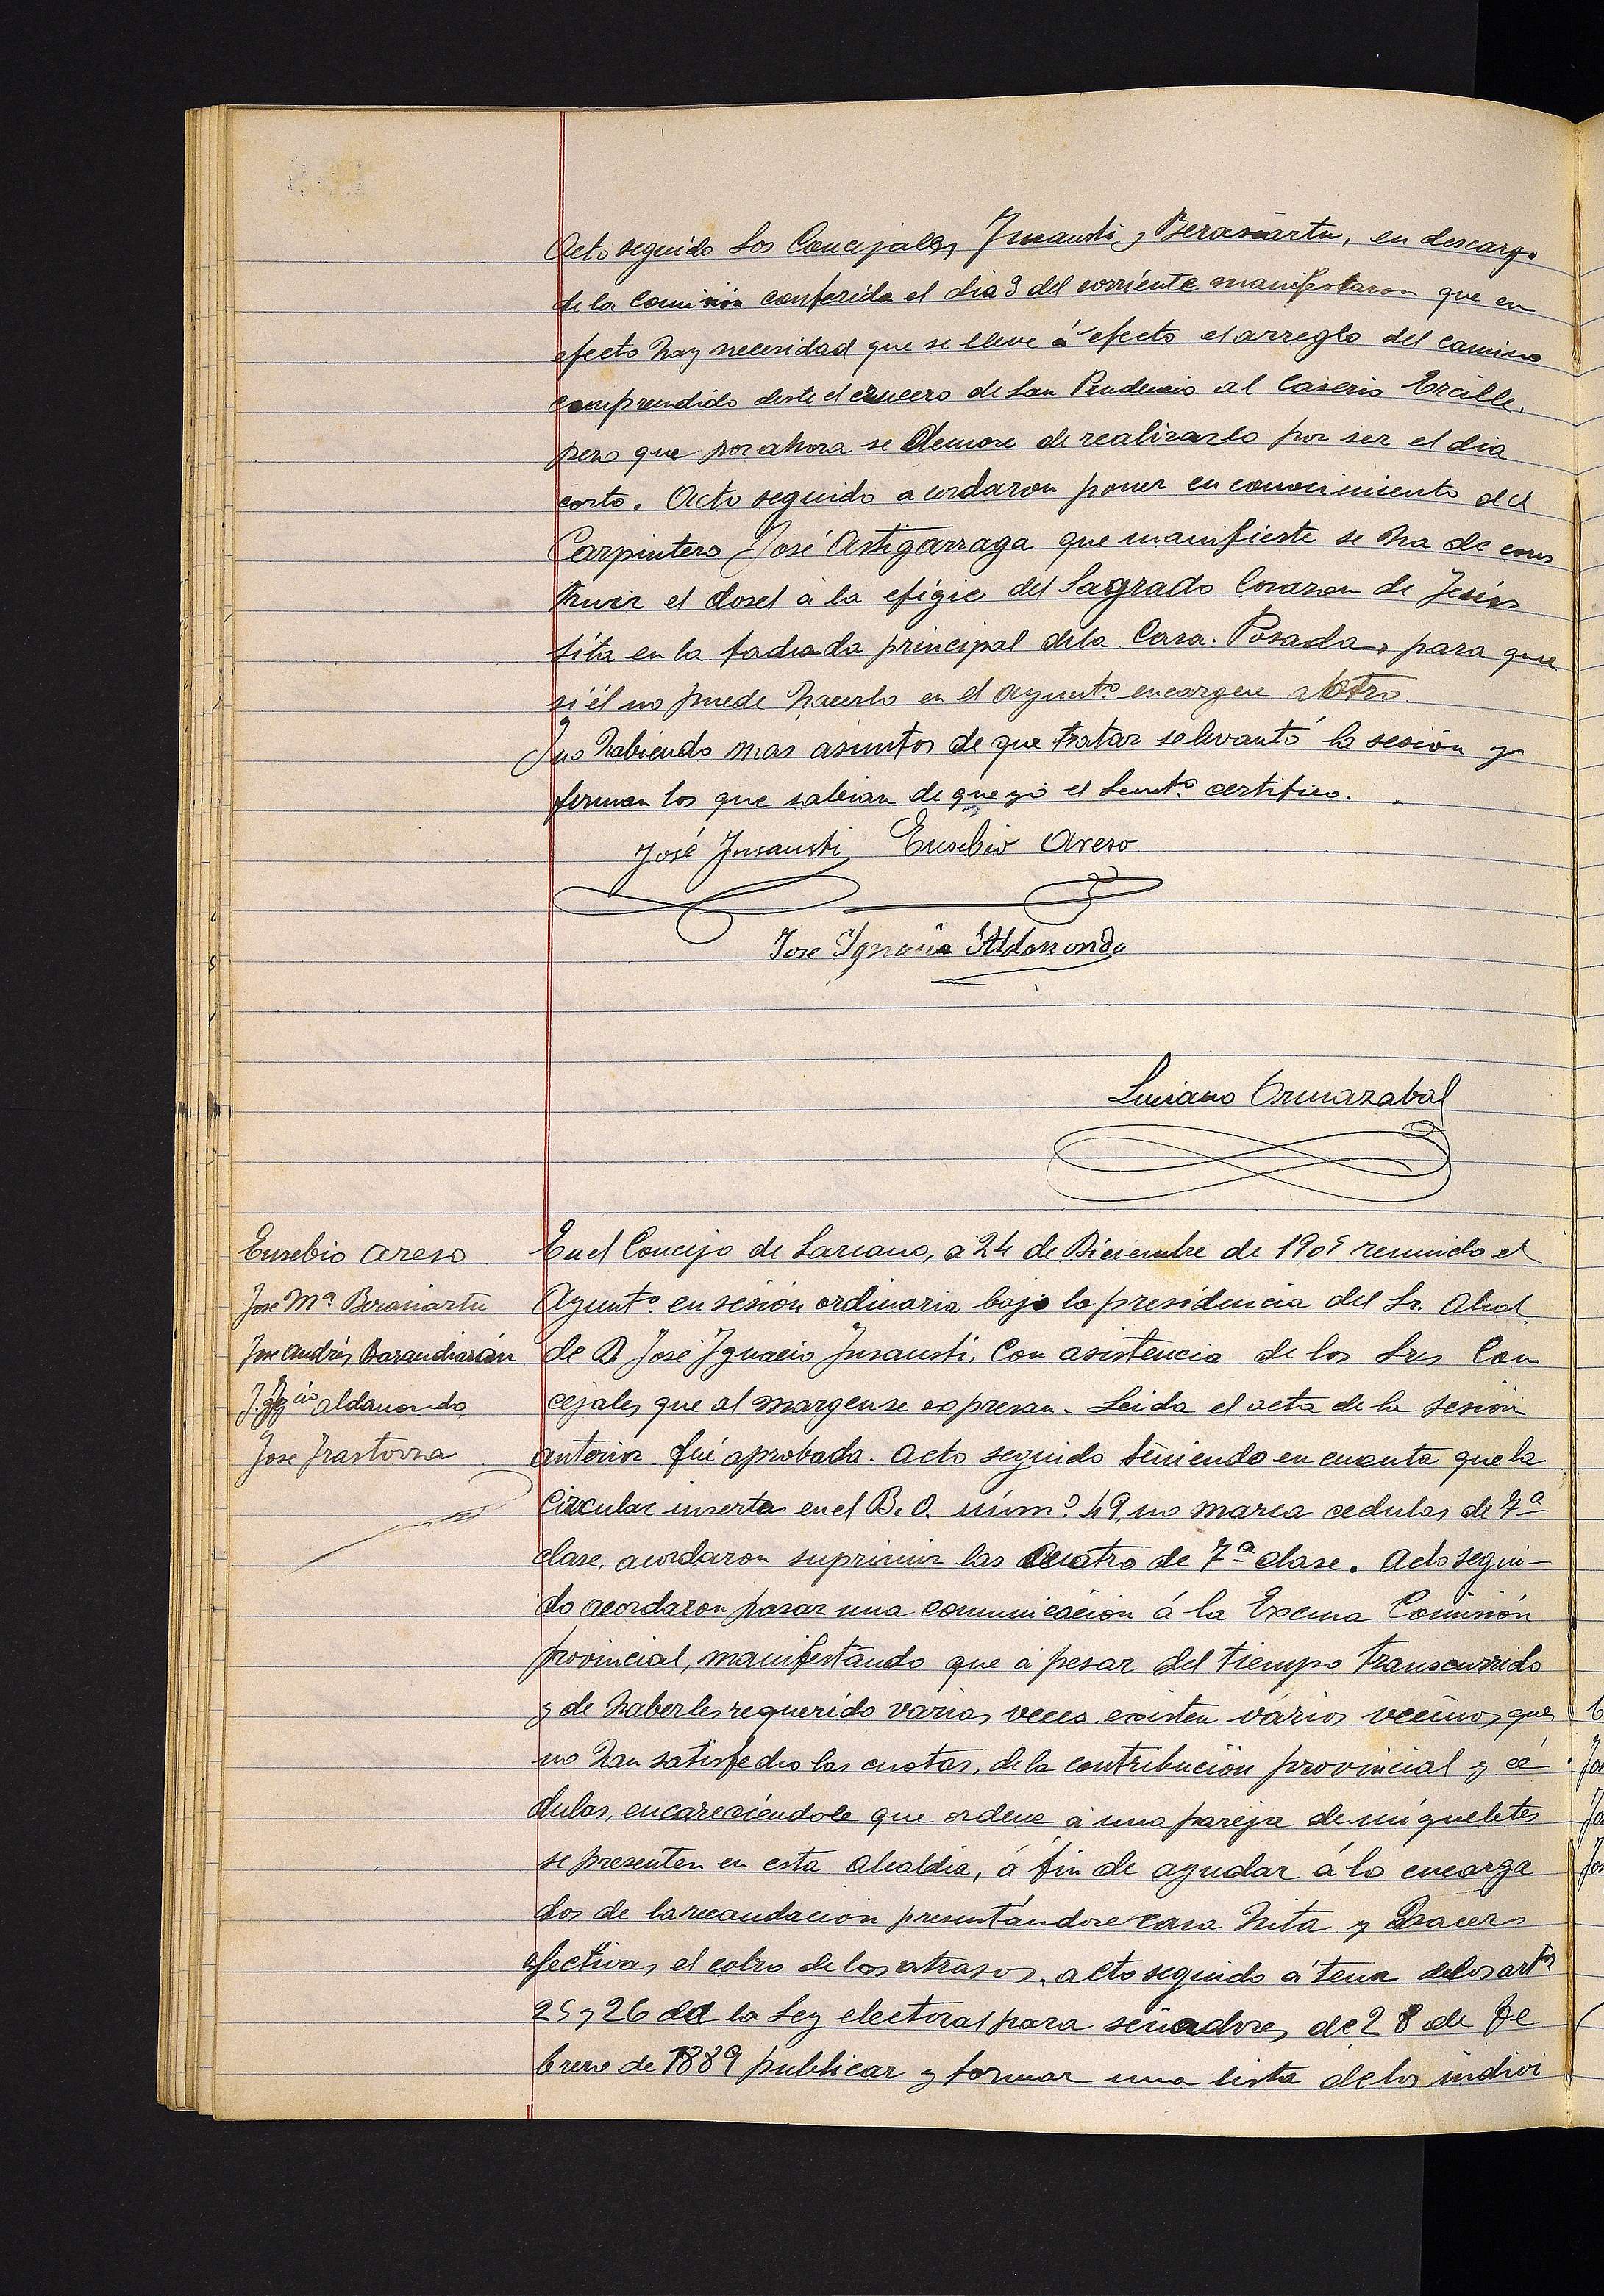 Acto seguido los Concejales, Insausti y Berasiartu, en descargo
de la comision conferida el dia 3 del corriente manifestaron que en
efecto hay necesidad que se lleve á efecto el arreglo del camino
comprendido deste el crucero de San Prudencio al Caserio Ercille.
pero que por ahora se demore de realizarlo por ser el dia
corto. Acto seguido acordaron poner en conocimiento del
Carpintero José Astigarraga que manifieste se ha de cons
truir el dosel á la efigie del Sagrado Corazon de Jesús
sita en la fachada principal dela Casa. Posada, para que
si él no puede hacerlo en el Ayuntº encargue a otro.
Y no habiendo mas asuntos de que tratar se levantó la sesión y
firman los que sabian de que yo el Secretº certifico.
José Insausti Eusebio Areso
Jose Ignacio Aldanondo
Luciano Ormazabal
Eusebio Areso
Jose Mª Berasiartu
Jose Andrés Barandiarán
J. Igcio Aldanondo
Jose Irastorza
En el Concejo de Lazcano, a 24 de Diciembre de 1905 reunido el
Ayuntº en sesión ordinaria bajo la presidencia del Sr. Alcal
de D. José Ignacio Insausti, Con asistencia de los Sres Con
cejales que al margen se expresan. Leida el acta de la sesión
anterior fué aprobada. Acto seguido teniendo en cuenta que la
Circular inserta en el B. O. númº 49, no marca cedulas de 7ª
clase, acordaron suprimir las cuatro de 7ª clase. Acto segui-
do acordaron pasar una comunicación á la Excma Comisión
provincial, manifestando que á pesar del tiempo transcurrido
y de haberles requerido varias veces existen varios vecinos que
no han satisfecho las cuotas, de la contribución provincial y cé
dulas, encareciéndole que ordene á una pareja de miqueletes
se presenten en esta Alcaldia, á fin de ayudar á los encarga
dos de la recaudacion presentándose casa hita y hacer
efectivas el cobro de los atrasos. acto seguido á tenor delos artos
25 y 26 de la Ley electoral para senadores, de 28 de Fe
brero de 1889 publicar y formar una lista delos indivi